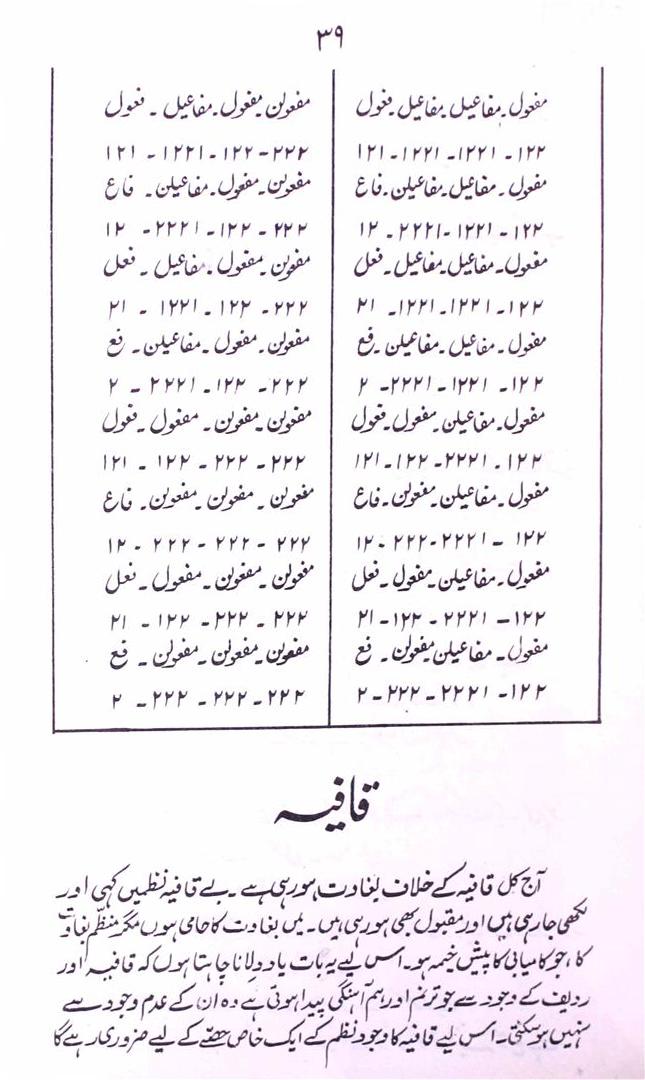 ۳۹
مفعول۔مفاعیل۔مفاعیل۔فعول
۱۲۲ - ۱۲۲۱ - ۱۲۲۱ - ۱۲۱
مفعول۔مفاعیل۔مفاعیلن۔فاع
۱۲۲ - ۱۲۲۱ - ۲۲۲۱ - ۱۲
مفعول۔مفاعیل۔مفاعیل۔فعل
۱۲۲ - ۱۲۲۱ - ۱۲۲۱ - ۲۱
مفعول۔مفاعیل۔مفاعیلن۔فع
۱۲۲ - ۱۲۲۱ - ۲۲۲۱ - ۲
مفعول۔مفاعیلن۔مفعول۔فعول
۱۲۲ - ۲۲۲۱ - ۱۲۲ - ۱۲۱
مفعول۔مفاعیلن۔مفعولن۔فاع
۱۲۲ - ۲۲۲۱ - ۲۲۲ - ۱۲
مفعول۔مفاعیلن۔مفعول۔فعل
۱۲۲ - ۲۲۲۱ - ۱۲۲ - ۲۱
مفعول۔مفاعیلن۔مفعولن۔فع
۱۲۲ - ۲۲۲۱ - ۲۲۲ - ۲
مفعولن۔مفعول۔مفاعیل۔فعول
۲۲۲ - ۱۲۲ - ۱۲۲۱ - ۱۲۱
مفعولن۔مفعول۔مفاعیلن۔فاع
۲۲۲ - ۱۲۲ - ۲۲۲۱ - ۱۲
مفعولن۔مفعول۔مفاعیل۔فعل
۲۲۲ - ۱۲۲ - ۱۲۲۱ - ۲۱
مفعولن۔مفعول۔مفاعیلن۔فع
۲۲۲ - ۱۲۲ - ۲۲۲۱ - ۲
مفعولن۔مفعولن۔مفعول۔فعول
۲۲۲ - ۲۲۲ - ۱۲۲ - ۱۲۱
مفعولن۔مفعولن۔مفعولن۔فاع
۲۲۲ - ۲۲۲ - ۲۲۲ - ۱۲
مفعولن۔مفعولن۔مفعول۔فعل
۲۲۲ - ۲۲۲ - ۱۲۲ - ۲۱
مفعولن۔مفعولن۔مفعولن۔فع
۲۲۲ - ۲۲۲ - ۲۲۲ - ۲
قافیہ
آج کل قافیہ کے خلاف بغاوت ہورہی ہے۔ بے قافیہ نظمیں کہی اور
لکھی جارہی ہیں اور مقبول بھی ہورہی ہیں۔ میں بغاوت کا حامی ہوں مگر منظّم بغاوت
کا، جو کامیابی کا پیش خیمہ ہو۔ اس لیے یہ بات یاد دلانا چاہتا ہوں کہ قافیہ اور
ردیف کے وجود سے جو ترنم اور ہم آہنگی پیدا ہوتی ہے وہ ان کے عدم وجود سے
نہیں ہوسکتی۔ اس لیے قافیہ کا وجود نظم کے ایک خاص حصّے کے لیے ضروری رہے گا